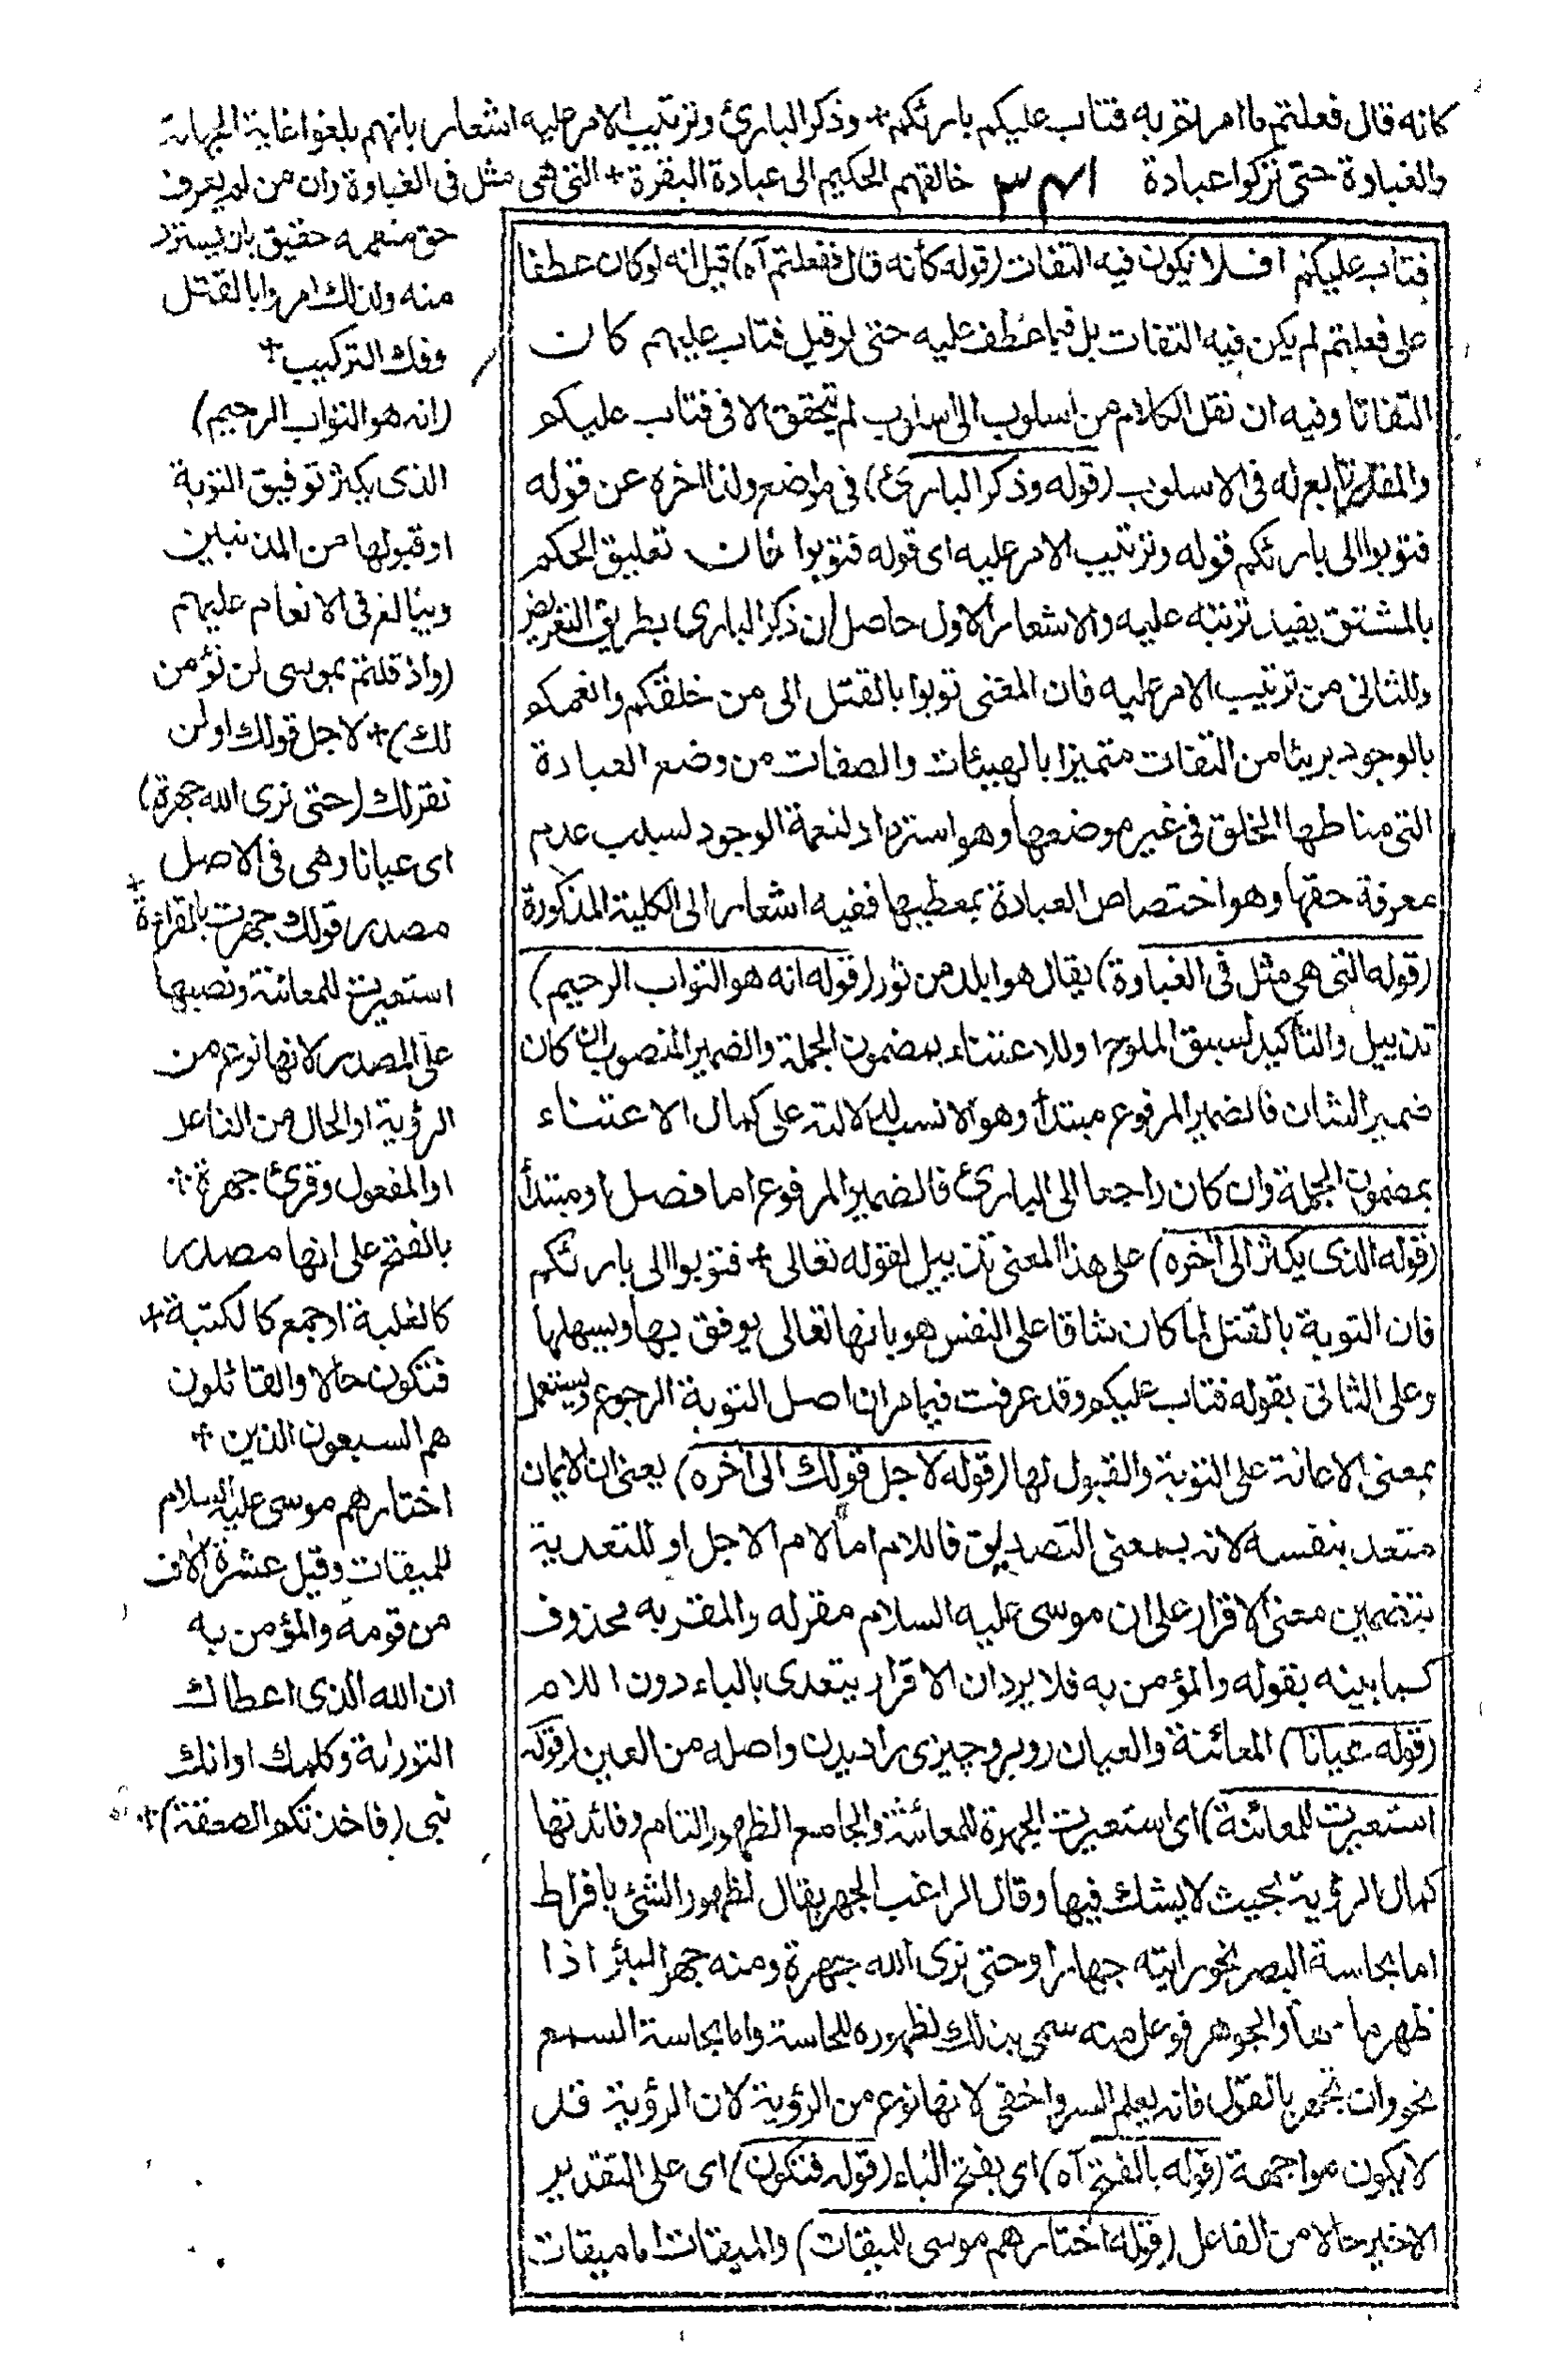 كانه قال فعلتم ما امرتم به فتاب عليكم بارئكم + وذكر البارئ وترتيب الامر عليه اشعار بانهم بلغوا غاية الجهالة
والغباوة حتى تركوا عبادة ٣٤١ خالقهم الحكيم الى عبادة البقرة + التى هى مثل فى الغباوة وان من لم يعرف
حق منعمه حقيق بان يسترد
منه ولذلك امروا بالقتل
وفك التركيب +
(انه هو التواب الرحيم)
الذى يكثر توفيق التوبة
او قبولها من المذنبين
ويبالغ فى الانعام عليهم
(واذ قلتم يموسى لن نؤمن
لك) + لاجل قولك او لن
نقر لك (حتى نرى الله جهرة)
اى عيانا وهى فى الاصل
مصدر قولك جهرت بالقراءة +
استعيرت للمعائنة ونصبها
على المصدر لانها نوع من
الرؤية او الحال من الفاعل
او المفعول وقرئ جهرة +
بالفتح على انها مصدر
كالغلبة او جمع كالكتبة +
فتكون حالا والقائلون
هم السبعون الذين +
اختارهم موسى عليه السلام
للميقات وقيل عشرة الاف
من قومه والمؤمن به
ان الله الذى اعطاك
التورىة وكلمك او انك
نبى (فاخذتكم الصعقة) +
فتاب عليكم افلا يكون فيه التفات (قوله كأنه قال ففعلتم آه) قيل انه لو كان عطفا
على فعلتم لم يكن فيه التفات بل فيما عطف عليه حتى لو قيل فتاب عليهم كان
التفاتا وفيه ان نقل الكلام من اسلوب الى اسلوب لم يتحقق الا فى فتاب عليكم
والمقدر تابع له فى الاسلوب (قوله وذكر البارئ) فى موضع ولذا اخره عن قوله
فتوبوا الى بارئكم قوله وترتيب الامر عليه اى قوله فتوبوا فان تعليق الحكم
بالمشتق يفيد ترتبه عليه والاشعار الاول حاصل ان ذكر البارى بطريق التعريض
وللثانى من ترتيب الامر عليه فان المعنى توبوا بالقتل الى من خلقكم وانعمكم
بالوجود بريئا من التفات متميزا بالهيئات والصفات من وضع العبادة
التى مناطها الخلق فى غير موضعها وهو استرداد لنعمة الوجود لسبب عدم
معرفة حقها وهو اختصاص العبادة بمعطيها ففيه اشعار الى الكلية المذكورة
(قوله التى هى مثل فى الغباوة) يقال هو ابلد من ثور (قوله انه هو التواب الرحيم)
تذييل والتأكيد لسبق الملوح او للاعتناء بمضمون الجملة والضمير المنصوب ان كان
ضمير الشان فالضمير المرفوع مبتدأ وهو الانسب لدلالته على كمال الاعتناء
بمضمون الجملة وان كان راجعا الى البارئ فالضمير المرفوع اما فصل او مبتدأ
(قوله الذى يكثر الى آخره) على هذا المعنى تذييل لقوله تعالى + فتوبوا الى بارئكم
فان التوبة بالقتل لما كان شاقا على النفس هو بانها تعالى يوفق بها ويسهلها
وعلى الثانى بقوله فتاب عليكم وقد عرفت فيما مر ان اصل التوبة الرجوع ويستعمل
بمعنى الاعانة على التوبة والقبول لها (قوله لاجل قولك الى آخره) يعنى ان الايمان
متعد بنفسه لانه بمعنى التصديق فاللام اما لام الاجل او للتعدية
بتضمين معنى الاقرار على ان موسى عليه السلام مقر له والمقر به محذوف
كما بينه بقوله والمؤمن به فلا يرد ان الاقرار يتعدى بالباء دون اللام
(قوله عيانا) المعائنة والعيان روبرو چيزى را ديدن واصله من العين (قوله
استعيرت للمعائنة) اى استعيرت الجهرة للمعائنة والجامع الظهور التام وفائدتها
كمال الرؤية بحيث لا يشك فيها وقال الراغب الجهر يقال لظهور الشئ بافراط
اما بحاسة البصر نحو رايته جهارا وحتى نرى الله جهرة ومنه جهر البئر اذا
ظهر ماءها والجوهر فوعل منه سمى بذلك لظهوره للحاسة واما بحاسة السمع
نحو وان تجهر بالقول فانه يعلم السر واخفى لانها نوع من الرؤية لان الرؤية قد
لا يكون مواجهة (قوله بالفتح آه) اى بفتح الهاء (قوله فتكون) اى على التقدير
الاخير حالا من الفاعل (قوله اختارهم موسى للميقات) والميقات اما ميقات